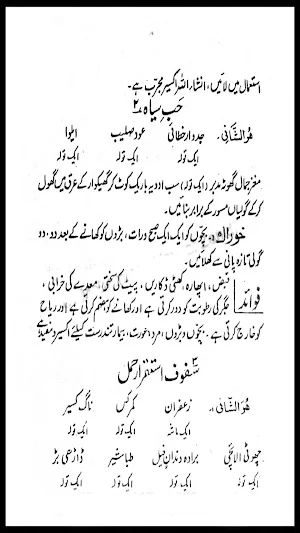 استعمال میں لائیں، انشاء اللہ اکسیر مجرّب ہے۔
حَبِّ سیاہ ۲
ھُوَ الشَّافِی، جدوار خطائی عود صلیب ایلوا
ایک تولہ ایک تولہ ایک تولہ
مغز جمال گھوٹہ مدبر (ایک تولہ) سب ادویہ باریک کوٹ کر گھیکوار کے عرق میں گھول
کر کے گولیاں مسور کے برابر بنائیں۔
خوراک، بچّوں کو ایک ایک صبح و رات، بڑوں کو کھانے کے بعد دو، دو
گولی تازہ پانی سے کھلائیں۔
فوائد قبض، اپھارہ، کھٹی ڈکاریں، پیٹ کی سختی، معدے کی خرابی،
جگر کی رطوبت کو دور کرتی ہے اور کھانے کو ہضم کرتی ہے اور ریاح
کو خارج کرتی ہے۔ بچّوں و بڑوں، مرد، عورت، بیمار تندرست کیلئے اکسیر و مفید ہے
سفوف استقرار حمل ۳
ھُوَ الشَّافِی، زعفران کمرکس ناگ کسیر
ایک ماشہ ایک تولہ ایک تولہ
چھوٹی الائچی برادہ دندان فیل طباشیر ڈاڑھی بڑ
ایک تولہ ایک تولہ ایک تولہ ایک تولہ